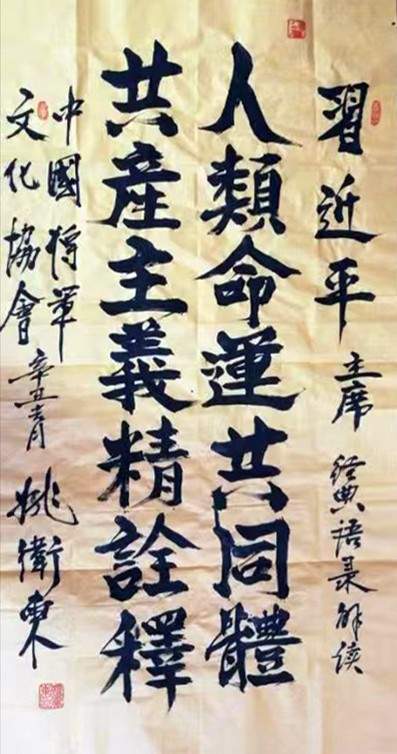 習近平主席 经典语录解读
人類命運共同體
共產主義精詮釋
中國将軍
文化協會 辛丑 月 姚衛東